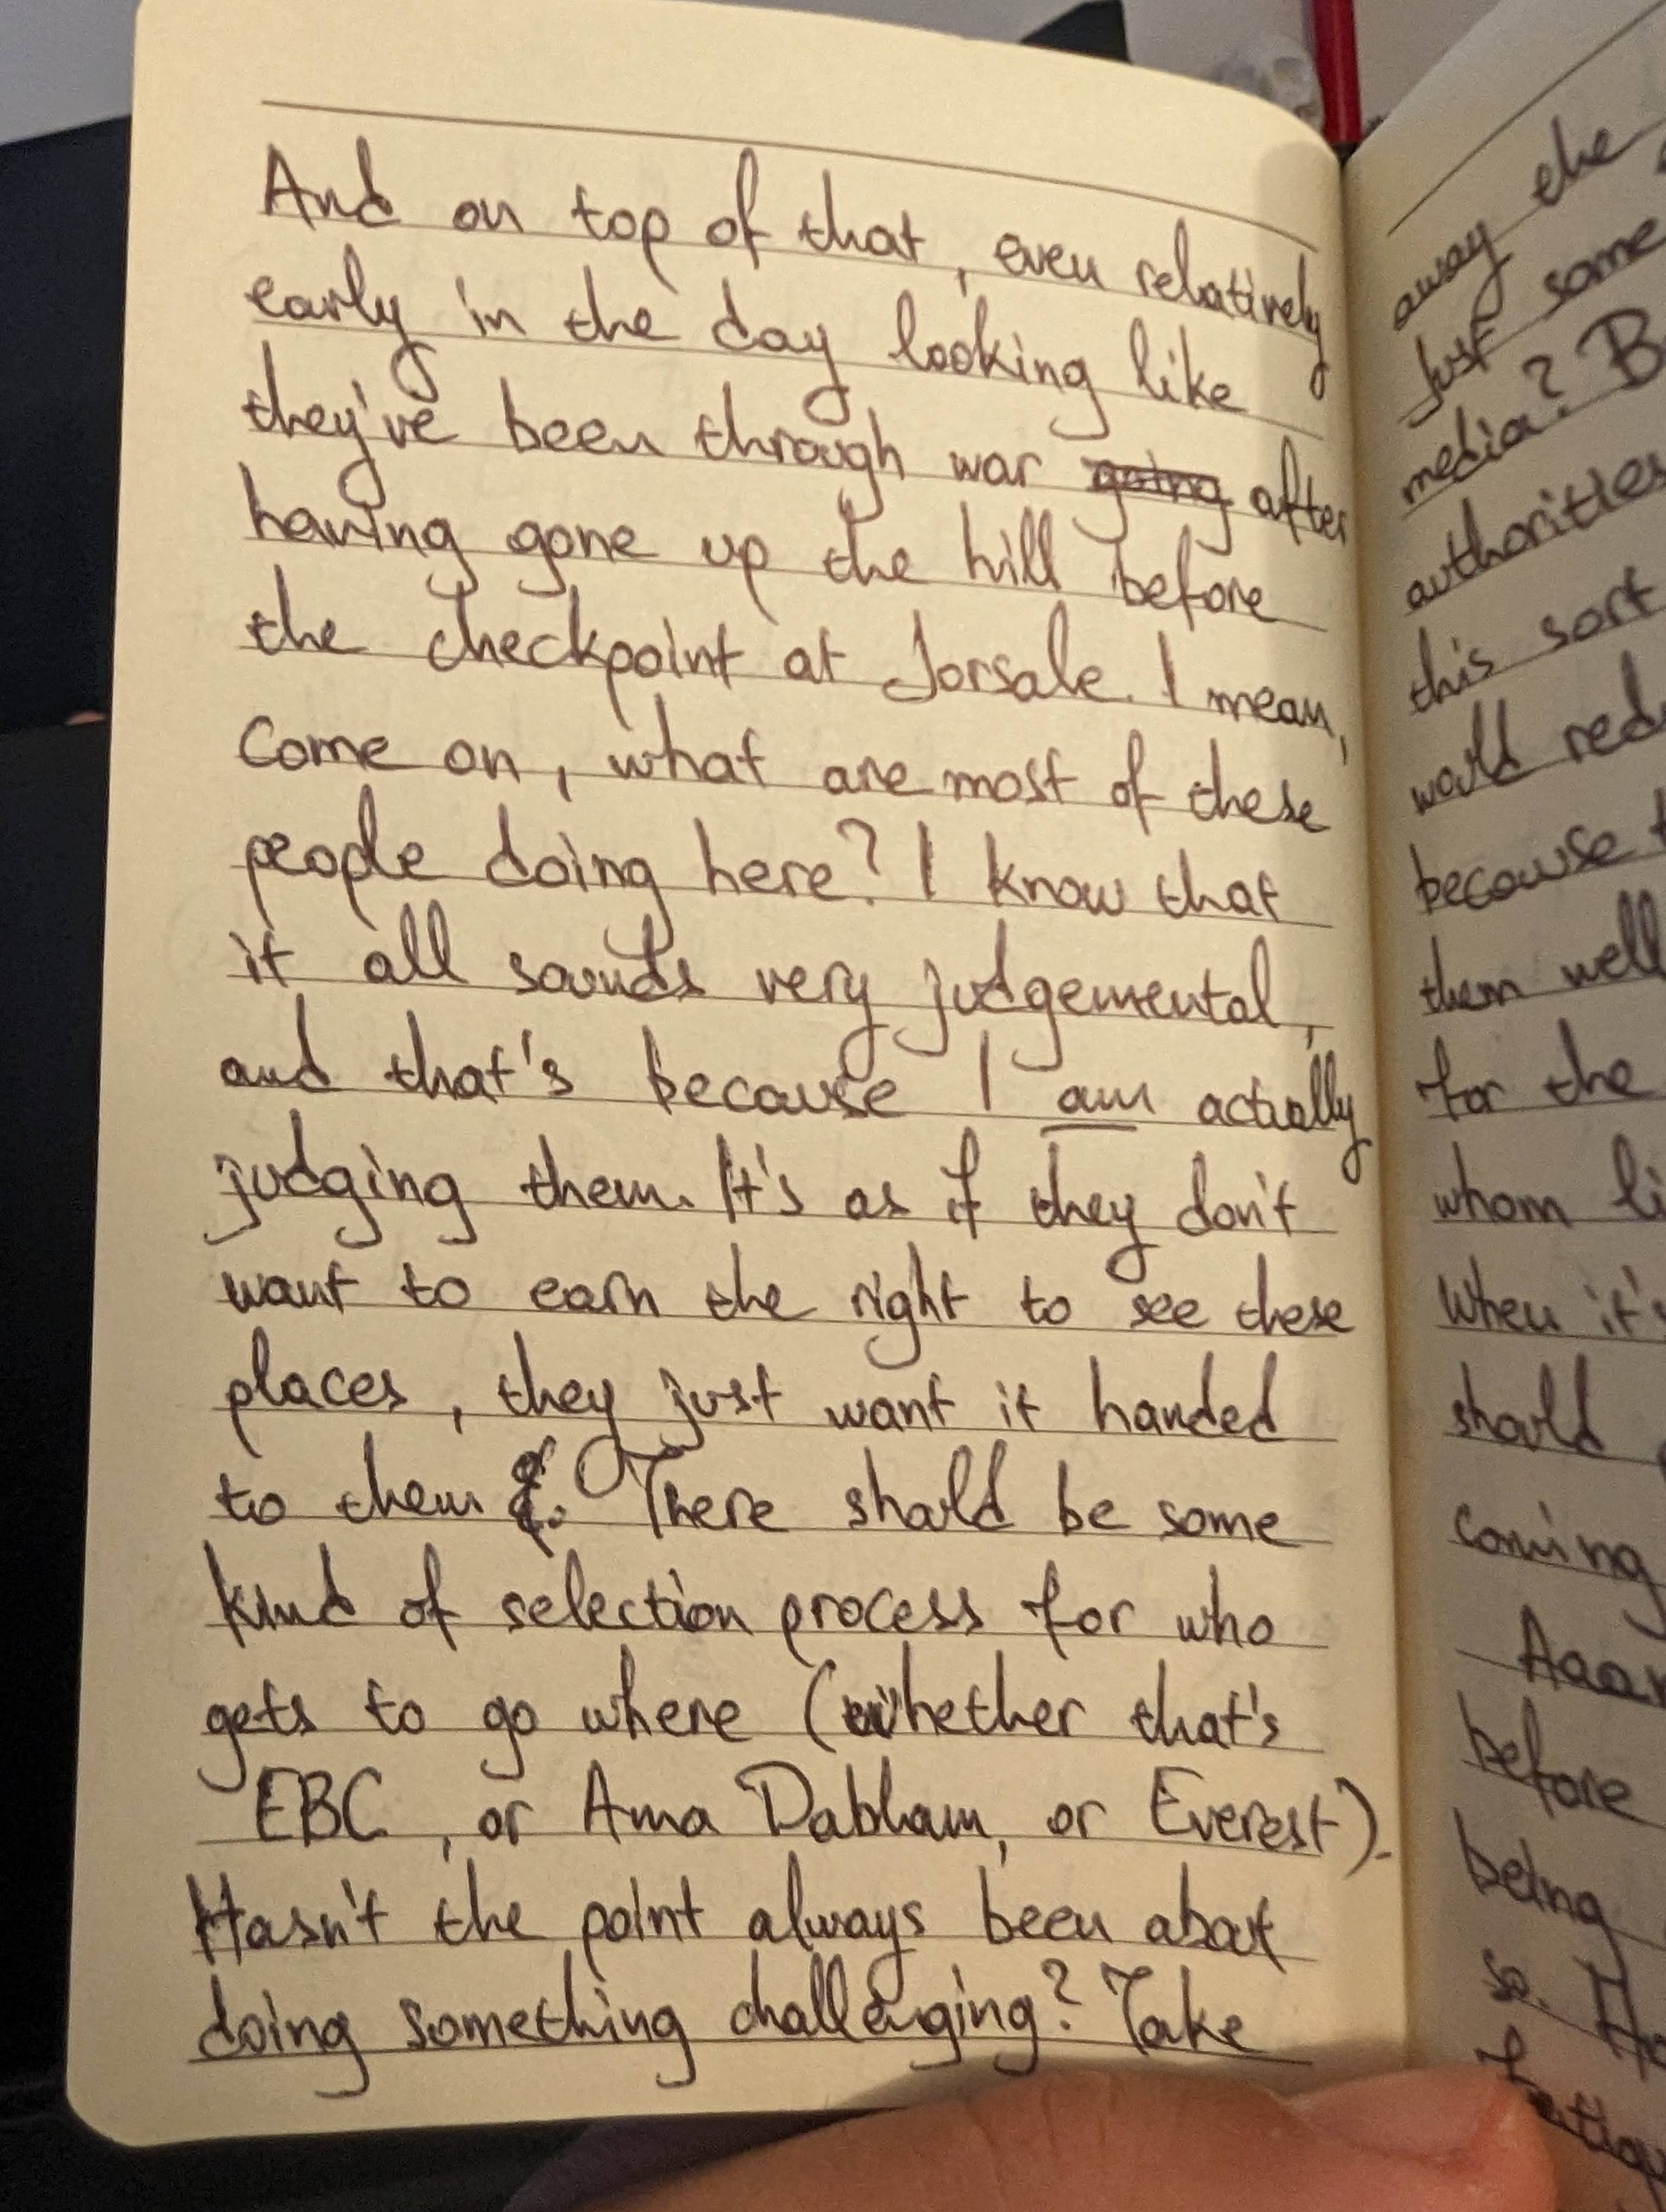 And on top of that, even relatively
early in the day looking like
they've been through war going after
having gone up the hill before
the checkpoint at Jorsale. I mean,
come on, what are most of these
people doing here? I know that
it all sounds very judgemental,
and that's because I am actually
judging them. It's as if they don't
want to earn the right to see these
places, they just want it handed
to them. There should be some
kind of selection process for who
gets to go where (whether that's
EBC, or Ama Dablam, or Everest).
Hasn't the point always been about
doing something challenging? Take
away the
just some
media?
authorities
this sort
would
because
them well
for the
whom
When it's
should
coming
before
being
so.